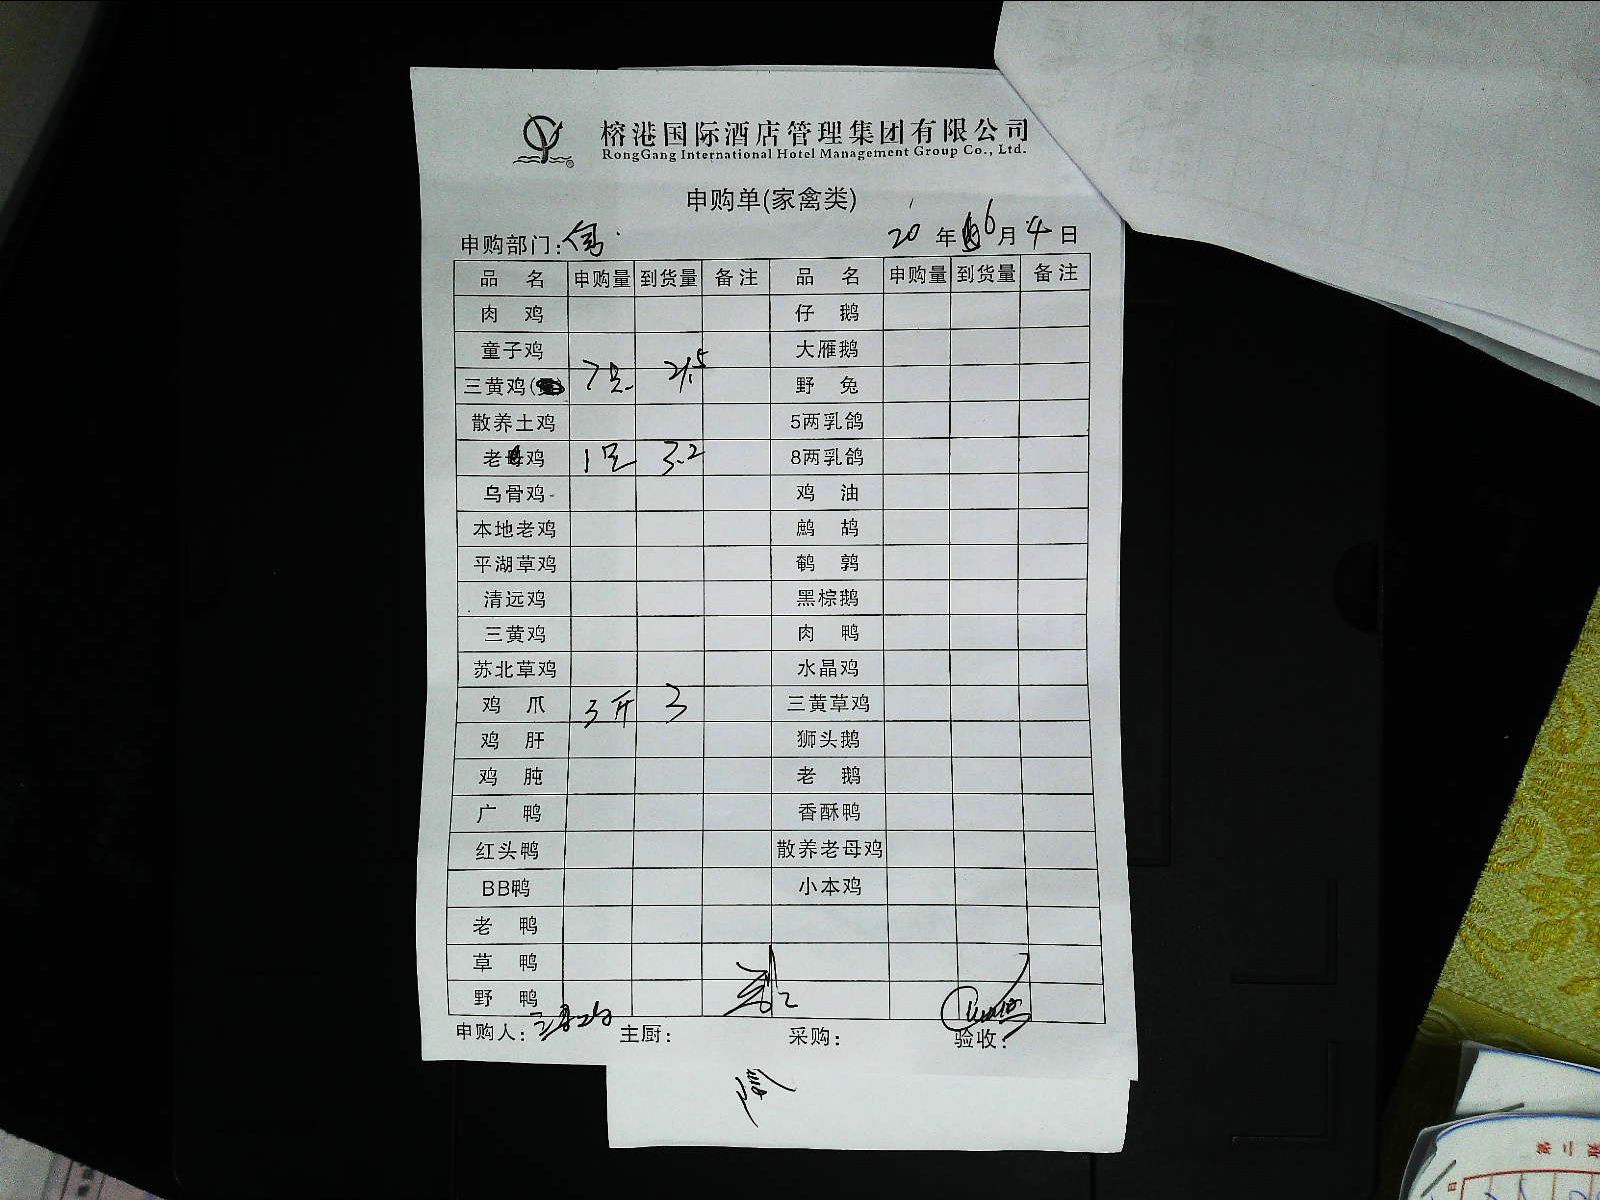 榕港国际酒店管理集团有限公司
RongGang International Hotel Management Group Co., Ltd.
申购单(家禽类)
申购部门: 20 年 6月 4 日
品 名 申购量 到货量 备注 品 名 申购量 到货量 备注
肉 鸡 仔 鹅
童子鸡 大雁鹅
三黄鸡( 7只 21.5 野 兔
散养土鸡 5两乳鸽
老母鸡 1只 3.2 8两乳鸽
乌骨鸡 鸡 油
本地老鸡 鹧 鸪
平湖草鸡 鹌 鹑
清远鸡 黑棕鹅
三黄鸡 肉 鸭
苏北草鸡 水晶鸡
鸡 爪 3斤 3 三黄草鸡
鸡 肝 狮头鹅
鸡 肫 老 鹅
广 鸭 香酥鸭
红头鸭 散养老母鸡
BB鸭 小本鸡
老 鸭
草 鸭
野 鸭
申购人: 主厨: 采购: 验收:
第二联